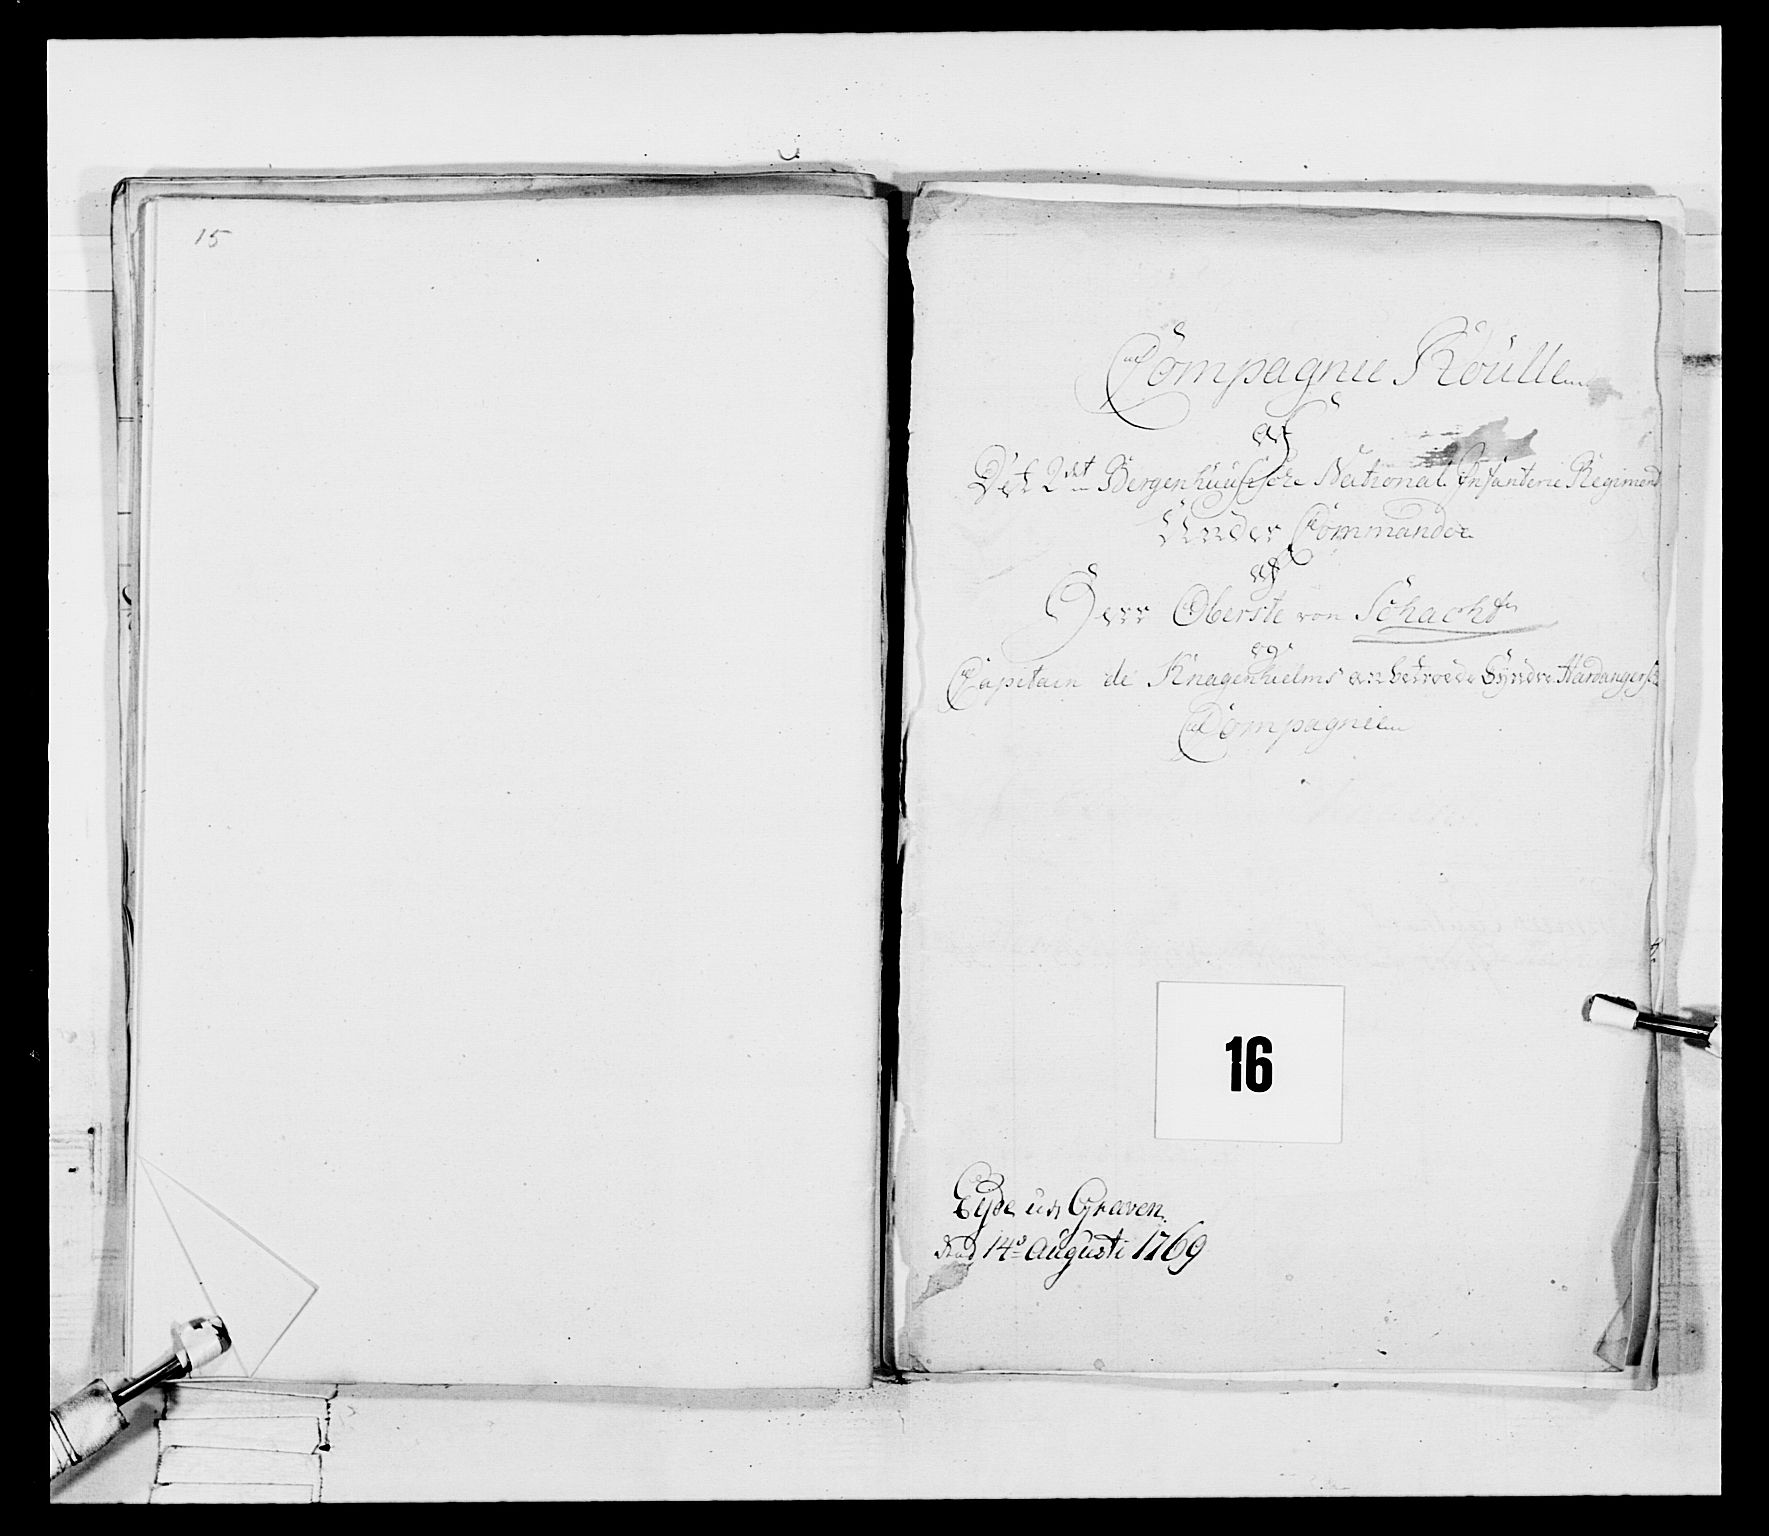 15
Compagnie Roulle
af
Det 2det Bergenhuusische National Infanterie Regiment
Under Commando
af
Herr Oberste von Schacht
og
Capitain de Knagenhielms anbetroede Syndre Hardangersk
Compagnie
16
Eyde udi Graven
den 14de Augusti 1769